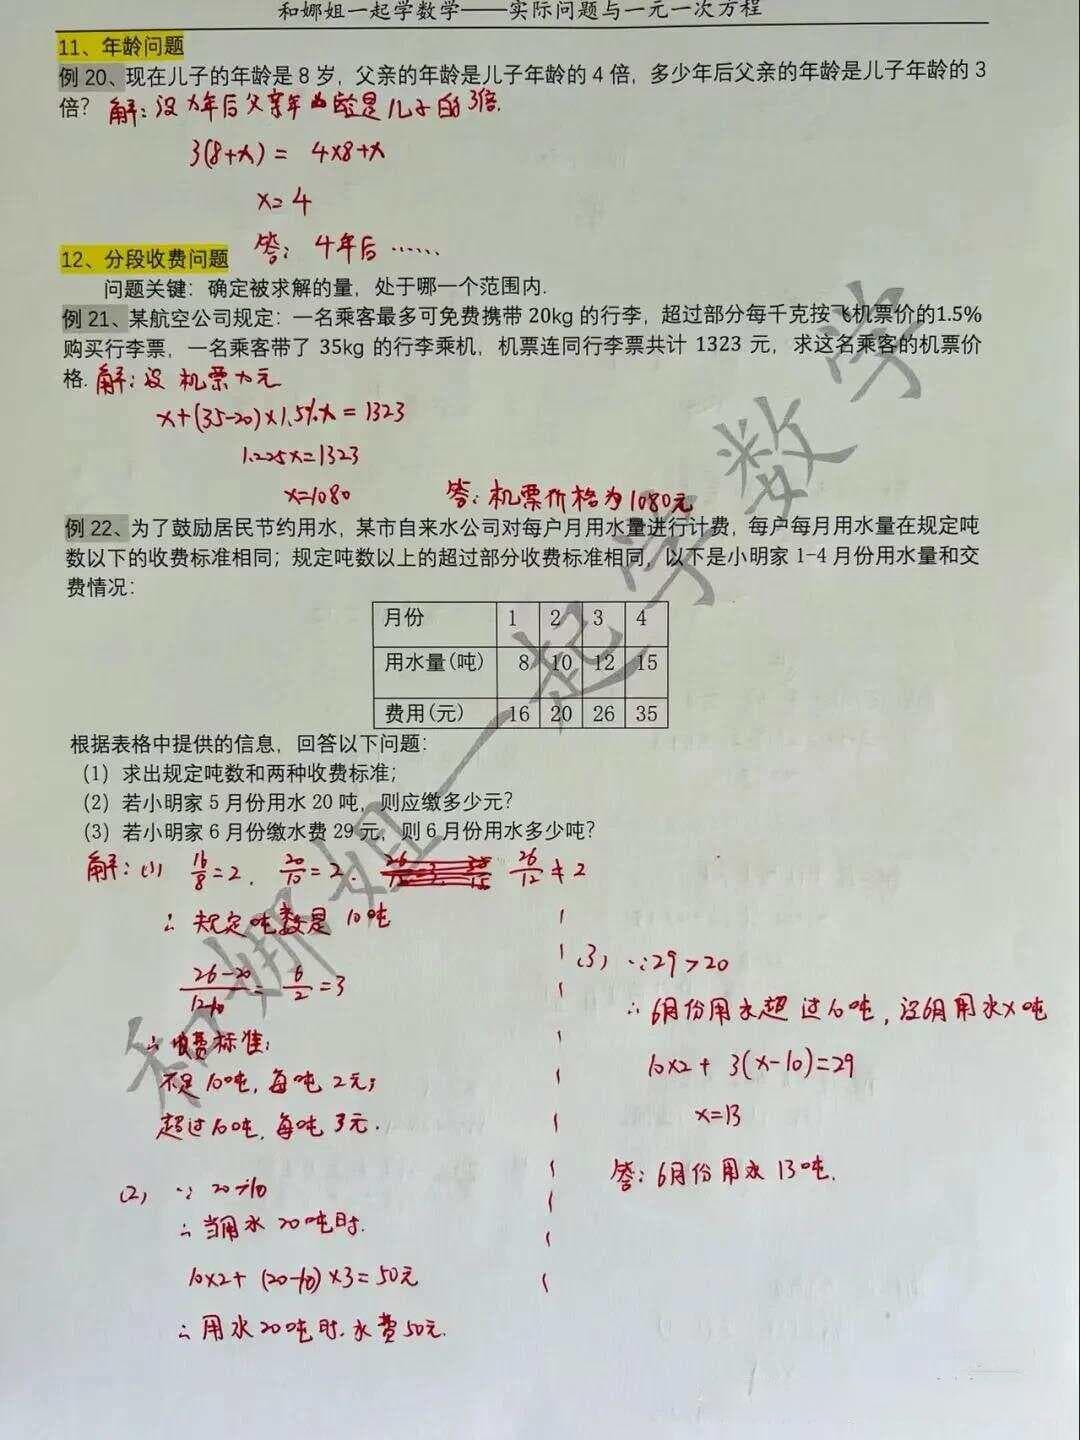 和娜姐一起学数学——实际问题与一元一次方程
11、年龄问题
例 20、现在儿子的年龄是 8 岁，父亲的年龄是儿子年龄的 4 倍，多少年后父亲的年龄是儿子年龄的 3
倍？ 解：设x年后父亲年龄是儿子的3倍.
3(8+x) = 4×8+x
x=4
答：4年后……
12、分段收费问题
问题关键：确定被求解的量，处于哪一个范围内.
例 21、某航空公司规定：一名乘客最多可免费携带 20kg 的行李，超过部分每千克按飞机票价的1.5%
购买行李票，一名乘客带了 35kg 的行李乘机，机票连同行李票共计 1323 元，求这名乘客的机票价
格. 解：设机票x元
x+(35-20)×1.5%x=1323
1.225x=1323
x=1080 答：机票价格为1080元
例 22、为了鼓励居民节约用水，某市自来水公司对每户月用水量进行计费，每户每月用水量在规定吨
数以下的收费标准相同；规定吨数以上的超过部分收费标准相同，以下是小明家 1-4 月份用水量和交
费情况：
月份 1 2 3 4
用水量(吨) 8 10 12 15
费用(元) 16 20 26 35
根据表格中提供的信息，回答以下问题：
（1）求出规定吨数和两种收费标准；
（2）若小明家 5 月份用水 20 吨，则应缴多少元？
（3）若小明家 6 月份缴水费 29 元，则 6 月份用水多少吨？
解：(1) 16/8=2. 20/10=2. 26/12≠2
∴ 规定吨数是10吨
26-20/12-10=6/2=3
∴收费标准：
不足10吨，每吨2元；
超过10吨，每吨3元.
(2) ∵ 20>10
∴当用水20吨时.
10×2+(20-10)×3=50元
∴用水20吨时.水费50元.
(3) ∵29>20
∴6月份用水超过10吨，设6月用水x吨
10×2+3(x-10)=29
x=13
答：6月份用水13吨.
和娜姐一起学数学